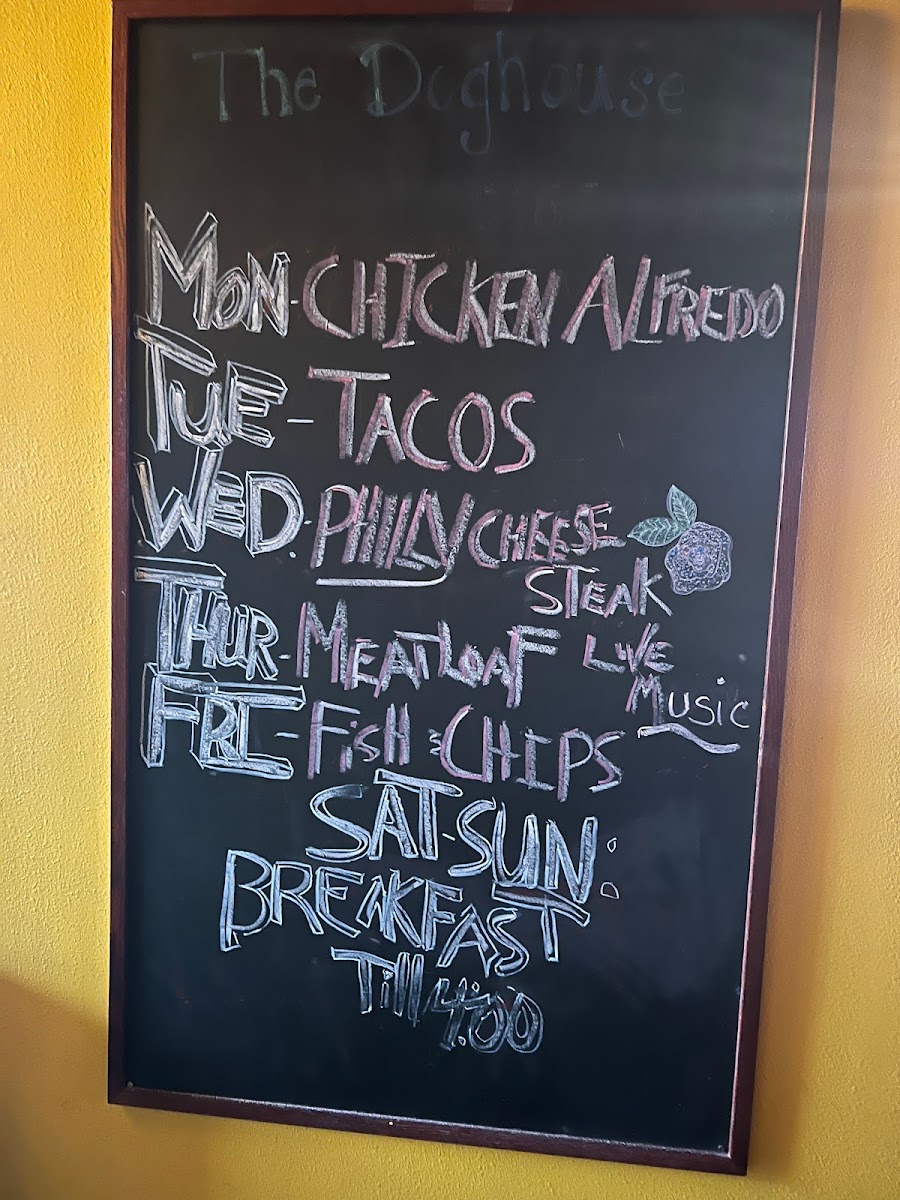 The Doghouse
MON-CHICKEN ALFREDO
TUE-TACOS
WED-PHILLY CHEESE
STEAK
THUR-MEATLOAF LIVE
MUSIC
FRI-FISH & CHIPS
SAT-SUN:
BREAKFAST
Till 4:00